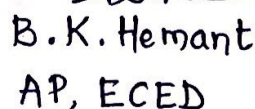 B.K. Hemant
AP, ECED